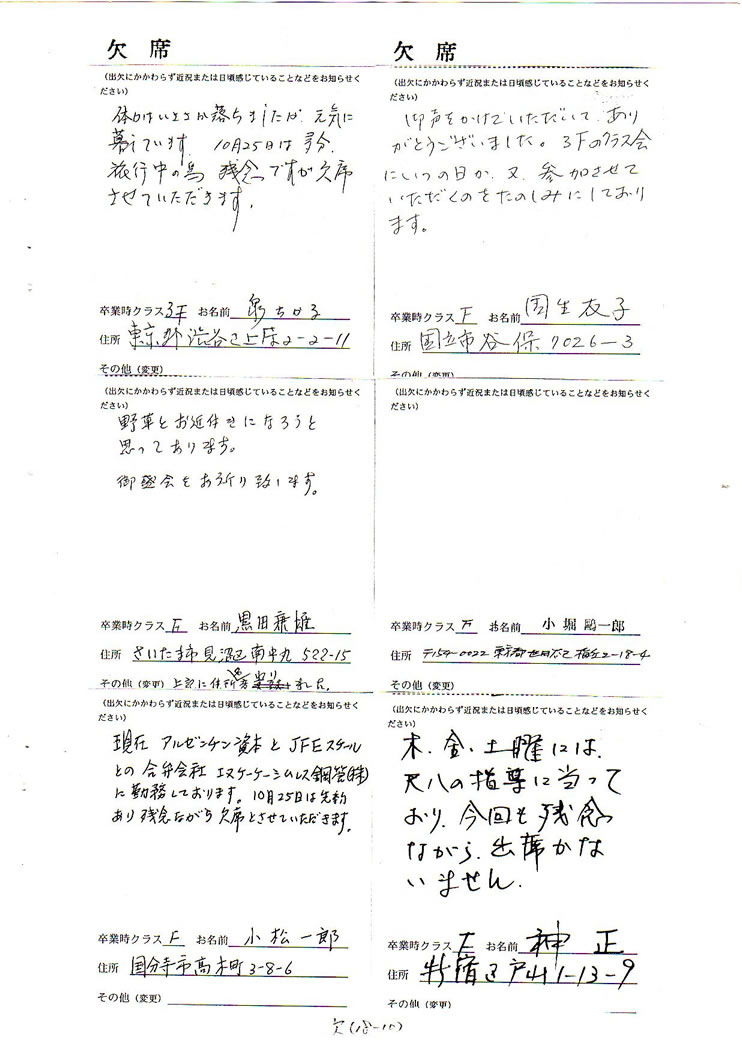 欠 席
（出欠にかかわらず近況または日頃感じていることなどをお知らせく
ださい）
体力はいささか落ちましたが、元気に
暮えています。10月25日は多分、
旅行中の為 残念ですが欠席
させていただきます。
卒業時クラス 3F お名前
住所 東京都渋谷区上原2-2-11
その他（変更）
欠 席
（出欠にかかわらず近況または日頃感じていることなどをお知らせく
ださい）
御声をかけていただいて、あり
がとうございました。3Fのクラス会
にいつの日か、又、参加させて
いただくのをたのしみにしており
ます。
卒業時クラス F お名前 国生衣子
住所 国立市谷保7026-3
その他（変更）
（出欠にかかわらず近況または日頃感じていることなどをお知らせく
ださい）
野草とお近付きになろうと
思っております。
御盛会をお祈り致します。
卒業時クラス F お名前 黒田兼雄
住所 さいたま市見沼区南中丸 522-15
その他（変更） 上記に住所 ました。
（出欠にかかわらず近況または日頃感じていることなどをお知らせく
ださい）
卒業時クラス F お名前 小堀鷗一郎
住所 〒154-0022 東京都世田谷区梅丘2-18-4
その他（変更）
（出欠にかかわらず近況または日頃感じていることなどをお知らせく
ださい）
現在 アルゼンチン資本とJFEスチール
との合弁会社 エヌケーケーシームレス鋼管(株)
に勤務しております。10月25日は先約
あり残念ながら欠席とさせていただきます。
卒業時クラス F お名前 小松一郎
住所 国分寺市高木町3-8-6
その他（変更）
（出欠にかかわらず近況または日頃感じていることなどをお知らせく
ださい）
木、金、土曜には、
尺八の指導に当って
おり、今回も残念
ながら、出席かな
いません。
卒業時クラス F お名前 神 正
住所 新宿区戸山1-13-9
その他（変更）
欠(18-10)